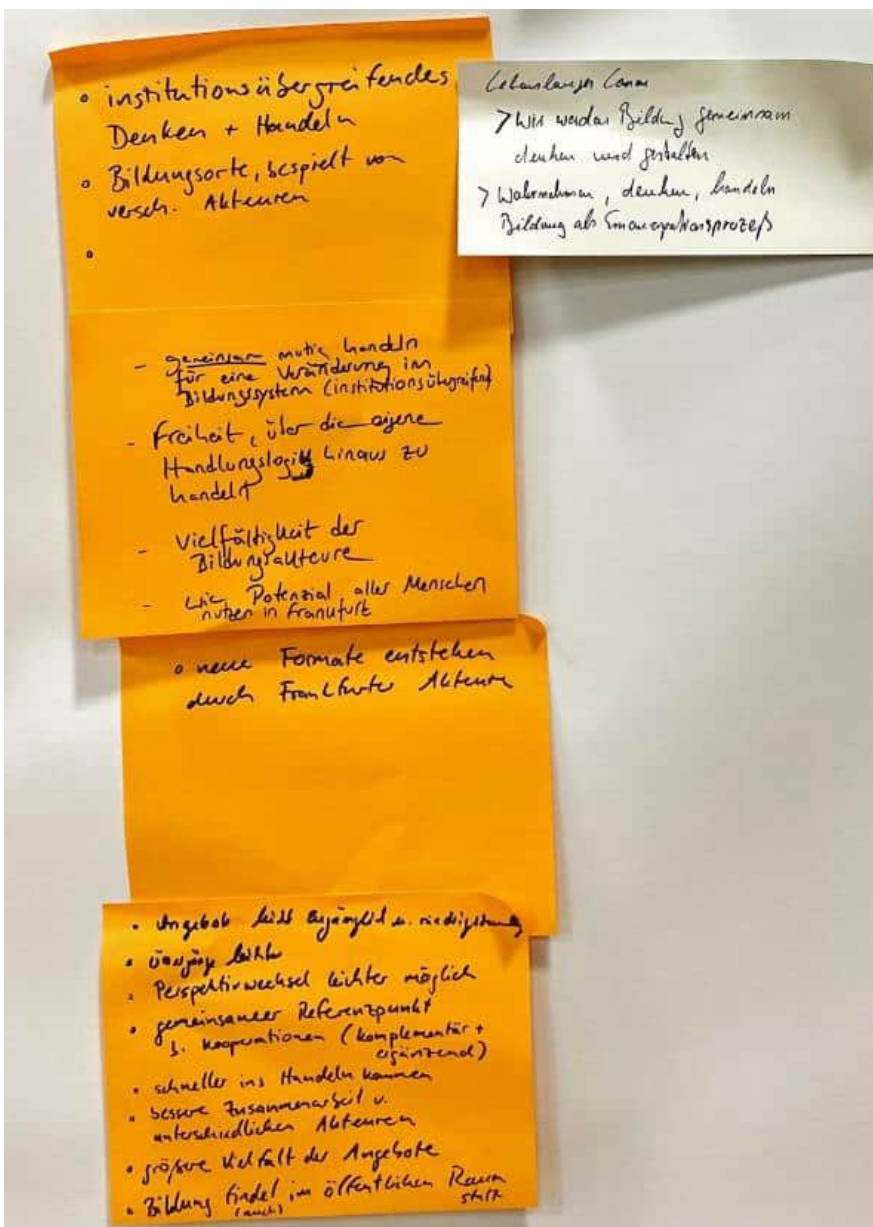 • institutionsübergreifendes
Denken + Handeln
• Bildungsorte, bespielt von
versch. Akteuren
•
Lebenslanges Lernen
> Wir werden Bildung gemeinsam
denken und gestalten
> Wahrnehmen, denken, handeln
Bildung als Emanzipationsprozeß
- gemeinsam mutig handeln
für eine Veränderung im
Bildungssystem (institutionsübergreifend)
- Freiheit, über die eigene
Handlungslogik hinaus zu
handeln
- Vielfältigkeit der
Bildungsakteure
- wie Potenzial aller Menschen
nutzen in Frankfurt
• neue Formate entstehen
durch Frankfurter Akteure
• Angebote leicht zugänglich u. niedrigschwellig
• Übergänge leichter
• Perspektivwechsel leichter möglich
• gemeinsamer Referenzpunkt
f. Kooperationen (komplementär +
ergänzend)
• schneller ins Handeln kommen
• bessere Zusammenarbeit v.
unterschiedlichen Akteuren
• größere Vielfalt der Angebote
• Bildung findet im öffentlichen Raum
(auch) statt